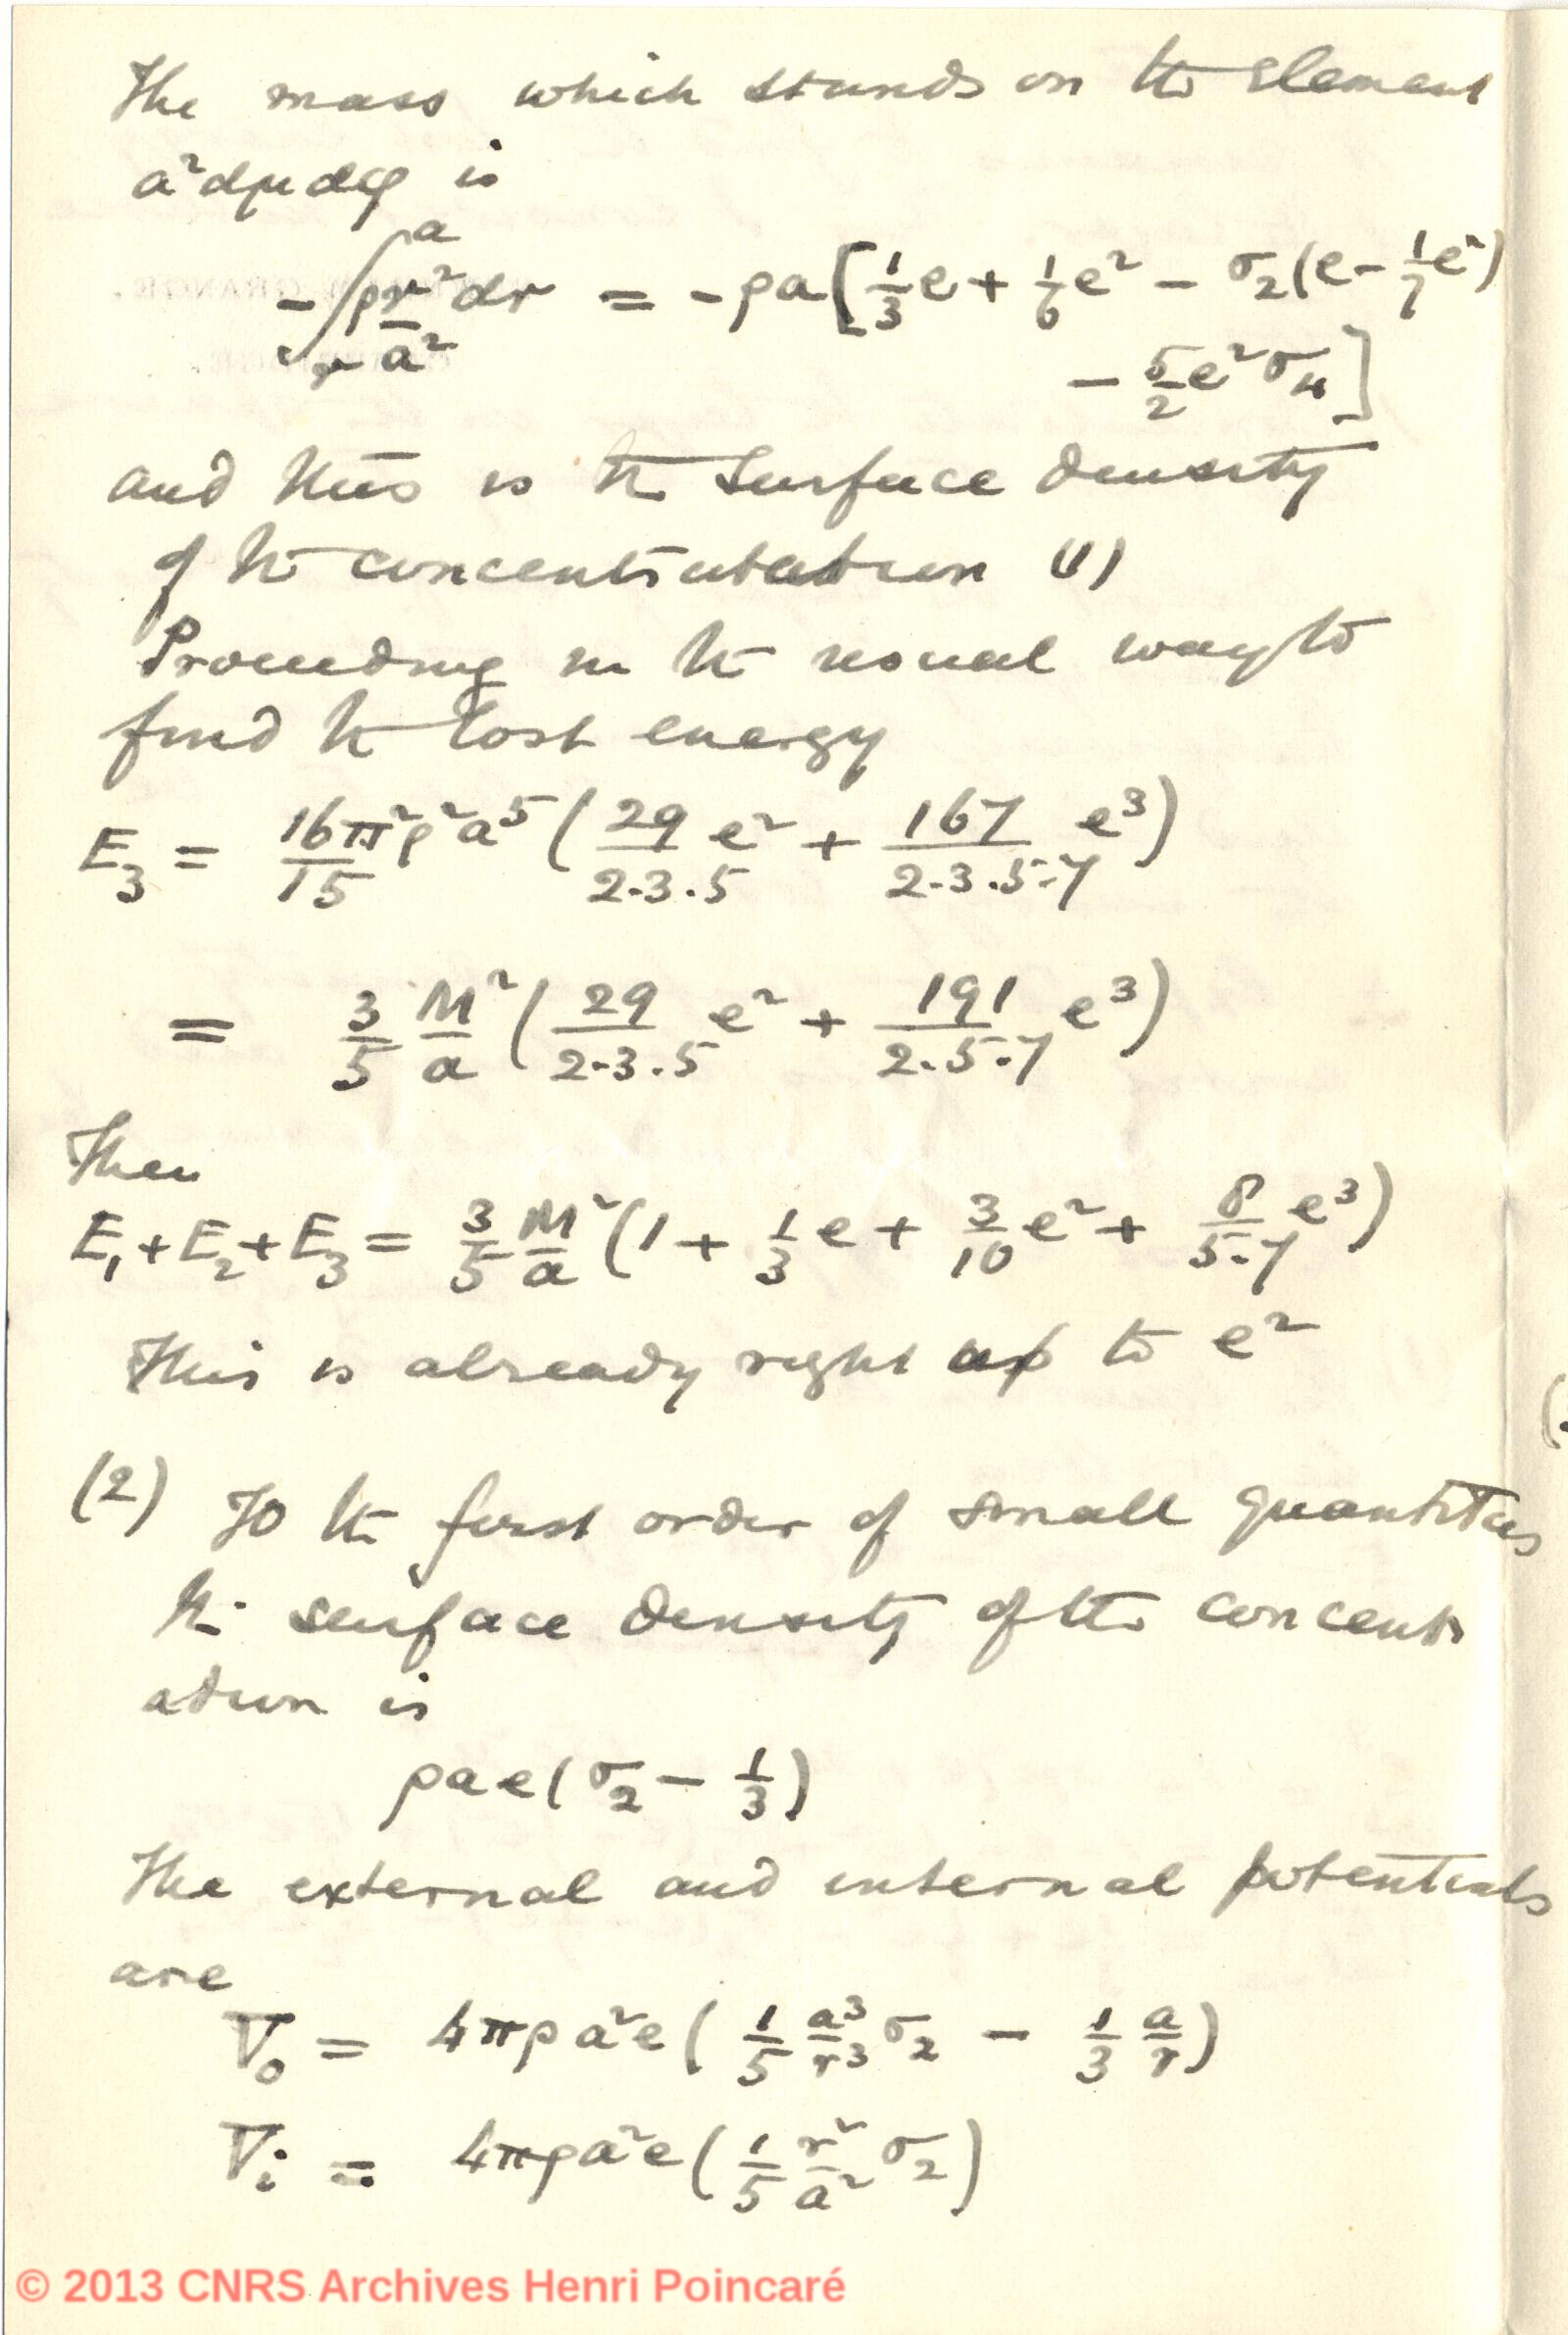 The mass which stands on the element
a²dμdφ is
-∫_r^a ρ r²/a² dr = -ρa[1/3 e + 1/6 e² - σ₂(e - 1/7 e²)
- 5/2 e² σ₄]
and this is the surface density
of the concentration (1)
Proceeding in the usual way to
find the lost energy
E₃ = 16/15 π²ρ²a⁵ (29/2·3·5 e² + 167/2·3·5·7 e³)
= 3/5 M²/a (29/2·3·5 e² + 191/2·5·7 e³)
Then
E₁+E₂+E₃ = 3/5 M²/a (1 + 1/3 e + 3/10 e² + 8/5·7 e³)
This is already right up to e²
(2) To the first order of small quantities
the surface density of the concentr
ation is
ρae(σ₂ - 1/3)
The external and internal potentials
are
V₀ = 4πρa²e (1/5 a³/r³ σ₂ - 1/3 a/r)
Vᵢ = 4πρa²e (1/5 r²/a² σ₂)
© 2013 CNRS Archives Henri Poincaré